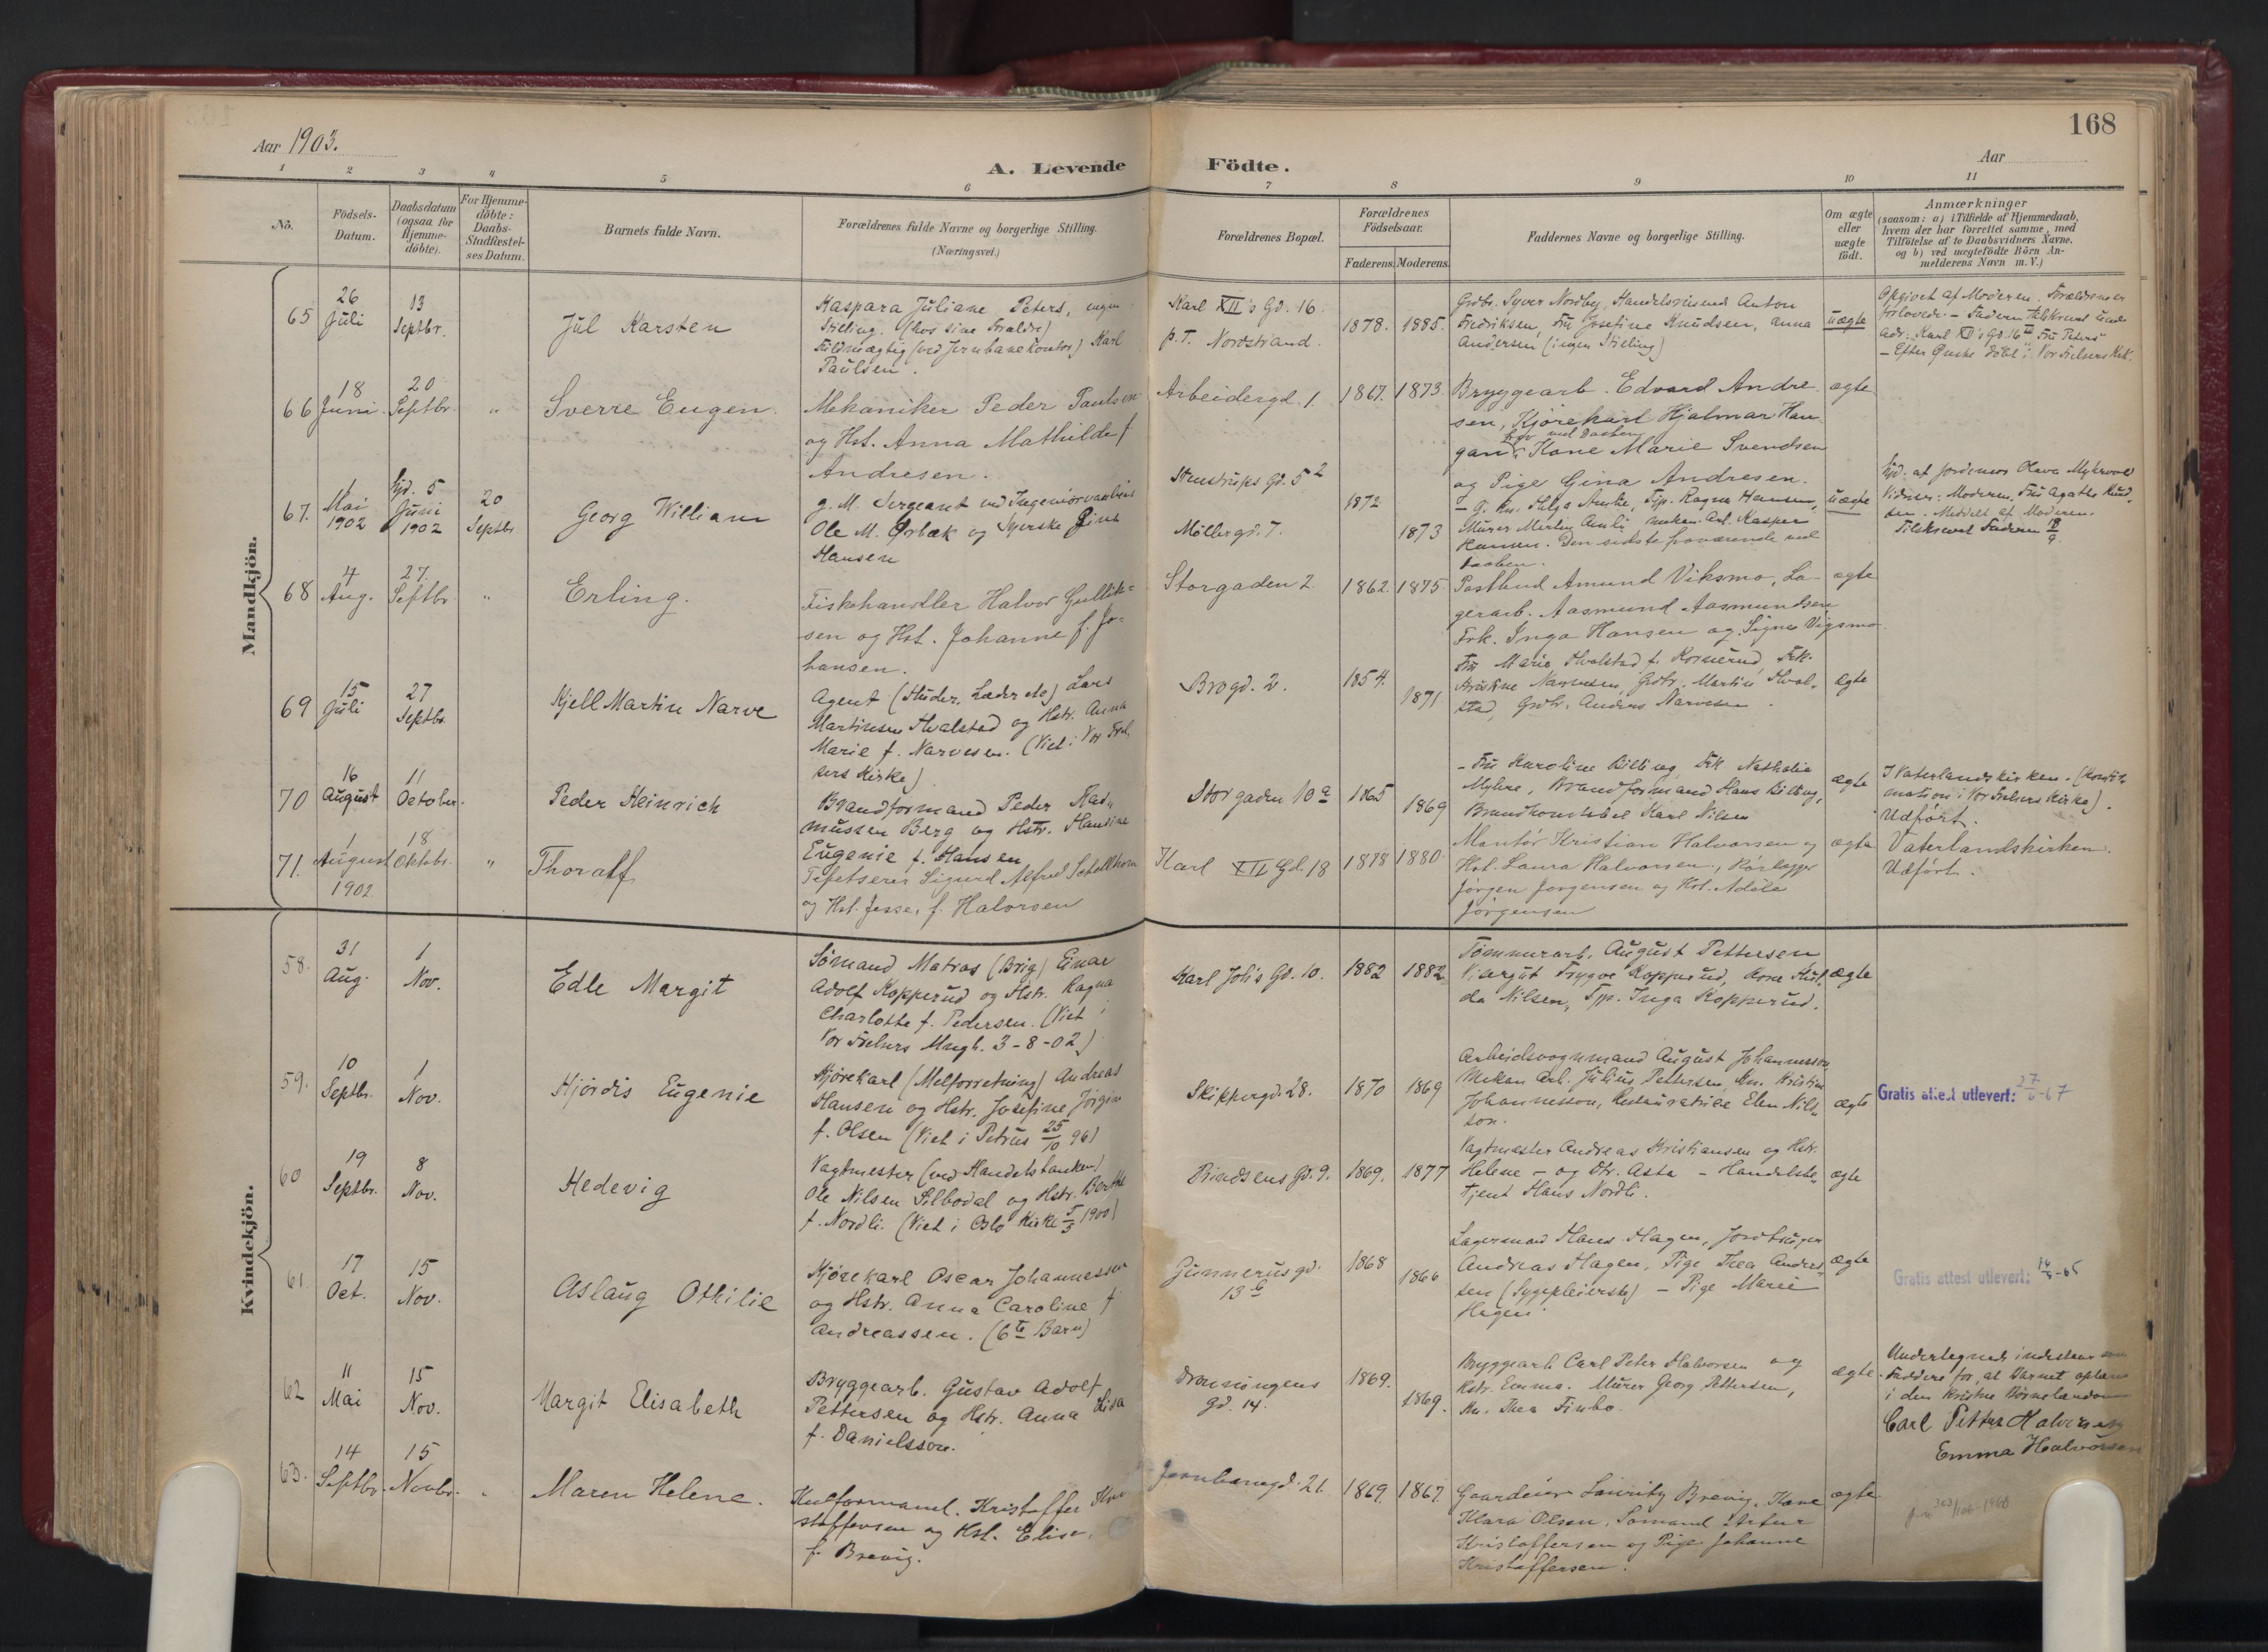 168
Aar 1903.
A. Levende Födte.
Aar
1 2 3 4 5 6 7 8 9 10 11
No.
Födsels-
Datum.
Daabsdatum
(ogsaa for
Hjemme-
döbte).
For Hjemme-
döbte:
Daabs-
Stadfæstel-
ses Datum.
Barnets fulde Navn.
Forældrenes fulde Navne og borgerlige Stilling.
(Næringsvei.)
Forældrenes Bopæl.
Forældrenes
Födselsaar.
Faderens. Moderens.
Faddernes Navne og borgerlige Stilling.
Om ægte
eller
uægte
födt.
Anmærkninger
(saasom: a) i Tilfælde af Hjemmedaab,
hvem der har forrettet samme, med
Tilföielse af to Daabsvidners Navne.
og b) ved uægtefödte Börn An-
melderens Navn m. V.)
Mandkjön.
65
26
Juli
13
Septbr.
Jul Karsten
Kaspara Juliane Peters, ingen
Stilling. (hos sine Forældre)
Fuldmægtig (ved Jernbanekontor) Karl
Paulsen.
Karl XII's Gd. 16
p.T. Nordstrand.
1878. 1885.
Grdbr. Syver Nordby, Handelsreisend Anton
Fredriksen, Fru Josefine Knudsen, Anna
Andersen (ingen Stilling)
uægte
Opgivet af Moderen. Forældrene er
forlovede. - Faderen tilskrevet under
Adr: Karl XII's Gd 16 III Fru Peters
- Efter Ønske döbt i Vor Frelsers Kirk.
66
18
Juni
20
Septbr.
"
Sverre Eugen.
Mekaniker Peder Paulsen
og Hst. Anna Mathilde f
Andresen.
Arbeidergd. 1.
1867. 1873.
Bryggearb. Edvard Andre-
sen, Kjörekarl Hjalmar Han-
ved Daaben
Kone Marie Svendsen
og Pige Gina Andresen.
ægte
67.
1
Mai
1902
Hjd. 5
Juni
1902
20
Septbr.
Georg William
g. M. Sergeant ved Ingeniörvaabnet
Ole M. Ørbæk og Syerske Gina
Hansen
Stenstrups Gd. 5 2
Möllergd. 7.
1872
1873
Helga Amlie, Tjp. Ragna Hansen,
Murer Martin Amlie mekan. Arb. Kasper
Hansen. Den sidste fraværende ved
Daaben.
uægte
Hjd. af Jordemor Olava Myhrvold
Vidner: Moderen, Fru Agathe Knud-
sen. Meddelt af Moderen.
Tilskrevet Faderen 18/9
68
4
Aug.
27.
Septbr.
"
Erling.
Fiskehandler Halvor Gullik-
sen og Hst. Johanne f. Jo-
hansen.
Storgaden 2.
1862. 1875.
Postbud Amund Viksmo, La-
gerarb. Aasmund Aasmundsen
Frk. Inga Hansen og Signe Vigsmo
ægte
69
15
Juli
27
Septbr.
Kjell Martin Narve
Agent (Huder, Læder etc) Lars
Martinsen Hvalstad og Hstr. Anna
Marie f. Narvesen. (Viet i Vor Frel-
sers Kirke)
Brogd. 2.
1854.
1871
Fru Marie Hvalstad f. Kornerud, Frk.
Kristine Narvesen, Grdbr. Martin Hval-
stad, Grdbr. Anders Narvesen.
ægte
70
16
August
11
October.
Peder Heinrich
Brandformand Peder Ras-
mussen Berg og Hstr. Handine
Eugenie f. Hansen
Storgaden 10 a
1865
1869
- Fru Karoline Billing, Frk Nathalie
Myhre, Brandformand Hans Billing,
Brandkonstabel Karl Nilsen
ægte
I Vaterlandskirken. (Konfir-
mation i Vor Frelsers Kirke).
Udført.
71.
1
August
1902
18
Oktobr.
"
Thoralf
Tapetserer Sigurd Alfred Schellhorn
og Hst. Jesse, f. Halvorsen
Karl XII Gd. 18
1878 1880.
Montör Kristian Halvorsen og
Hst. Laura Halvorsen, Rörlegger
Jörgen Jorgensen og Hst. Adéle
Jörgensen
ægte
Vaterlandskirken.
Udført.
Kvindekjön.
58.
31
Aug.
1
Nov.
Edle Margit
Sömand Matros (Brig) Einar
Adolf Kopperud og Hstr. Ragna
Charlotte f. Pedersen. (Viet i
Vor Frelsers Mngh. 3-8-02)
Karl Joh's Gd. 10.
1882 1882
Tömmerarb. August Pettersen
Visergut Trygve Kopperud, Kone Hul-
da Nilsen, Tjp. Inga Kopperud.
ægte
59.
10
Septbr.
1
Nov.
Hjördis Eugenie
Kjörekarl (Melforretning) Andreas
Hansen og Hstr. Josefine Jörgine
f. Olsen (Viet i Petrus 25/10 96)
Skippergd. 28.
1870 1869
Arbeidsvognmand August Johannesson
Mekan Arb. Julius Pettersen, Kn. Kristine
Johannesson, Restauratrice Elen Nils-
son.
ægte
Gratis attest utlevert: 27/6-67
60
19
Septbr.
8
Nov.
Hedevig
Vagtmester (ved Handelsbanken)
Ole Nilsen Silbodal og Hstr. Berthe
f. Nordli. (Viet i Oslo Kirke 5/5 1900)
Brindsens Gd. 9.
1869. 1877
Vagtmester Andreas Kristiansen og Hstr.
Helene - og Dtr. Asta - Handelsbe-
tjent Hans Nordli.
ægte
61.
17
Oct.
15
Nov.
Aslaug Othilie
Kjörekarl Oscar Johannessen
og Hstr. Anna Caroline f
Andreassen. (6te Barn)
Gunnerusgd.
13 b
1868
1866
Lagermand Hans Hagen, Jordbruger
Andreas Hagen, Pige Thea Andres-
sen (Sygepleierske) - Pige Marie
Hagen
ægte
Gratis attest utlevert: 14/9-65
62
11
Mai
15
Nov.
Margit Elisabeth
Bryggearb. Gustav Adolf
Pettersen og Hstr. Anna Lisa
f. Danielsson.
Dronningens
Gd. 14.
1869.
1869.
Bryggearb Carl Peter Halvorsen og
Hstr. Emma. Murer Georg Pettersen,
Kn. Thea Finbo.
ægte.
Undertegnede indestaar som
Faddere for, at Barnet oplæres
i den kristne Börnelærdom
Carl Petter Halvorsen
Emma Halvorsen
63.
14
Septbr.
15
Novbr.
Maren Helene.
Kulformand. Kristoffer Kri-
stoffersen og Hst. Elise,
f. Brevig.
Jernbanegd. 21
1869. 1867.
Gaardeier Lauritz Brevig, Kone
Klara Olsen, Sömand Artur
Kristoffersen og Pige Johanne
Kristoffersen.
ægte